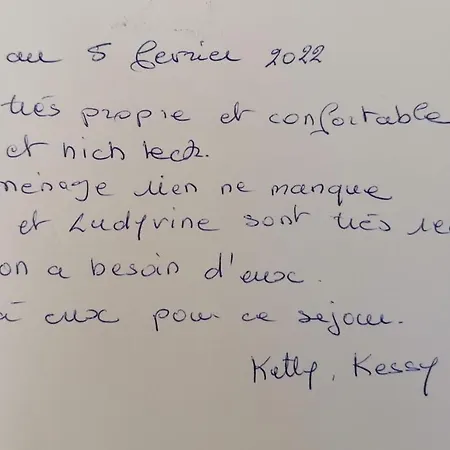 au 5 fevrier 2022
très propre et confortable
et hich teck.
ménage rien ne manque
et Ludyvine sont très re
on a besoin d'eux.
à eux pour ce séjour.
Ketty, Kessy